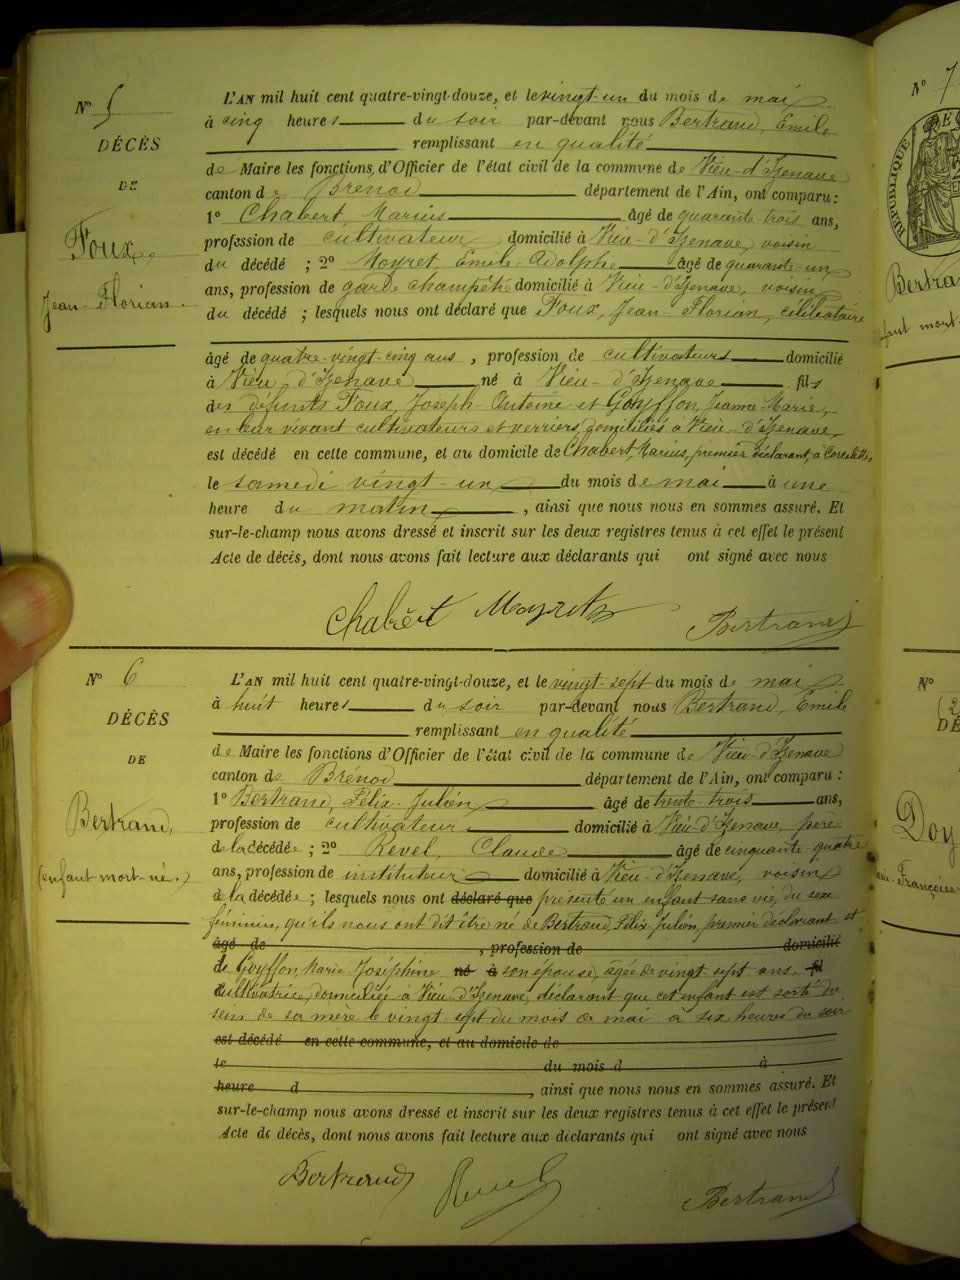 N° 5
DÉCÈS
DE
Foux,
Jean-Florian
L'AN mil huit cent quatre-vingt-douze, et le vingt-un du mois de mai
à cinq heures du soir par-devant nous Bertrand, Emile
remplissant en qualité
de Maire les fonctions d'Officier de l'état civil de la commune de Vieu-d'Izenave
canton de Brénod département de l'Ain, ont comparu :
1° Chabert Marius âgé de quarante-trois ans,
profession de cultivateur domicilié à Vieu-d'Izenave, voisin
du décédé ; 2° Moyret, Emile-Adolphe âgé de quarante-un
ans, profession de garde champêtre domicilié à Vieu-d'Izenave, voisin
du décédé ; lesquels nous ont déclaré que Foux, Jean-Florian, célibataire
âgé de quatre-vingt-cinq ans , profession de cultivateurs domicilié
à Vieu-d'Izenave né à Vieu-d'Izenave fils
des défunts Foux, Joseph-Antoine et Goyffon, Jeanne-Marie,
en leur vivant cultivateurs et verriers, domiciliés à Vieu-d'Izenave,
est décédé en cette commune, et au domicile de Chabert, Marius, premier déclarant, à
le samedi vingt-un du mois de mai à une
heure du matin , ainsi que nous nous en sommes assuré. Et
sur-le-champ nous avons dressé et inscrit sur les deux registres tenus à cet effet le présent
Acte de décès, dont nous avons fait lecture aux déclarants qui ont signé avec nous
Chabert Moyret Bertrand
N° 6
DÉCÈS
DE
Bertrand,
(enfant mort-né.)
L'AN mil huit cent quatre-vingt-douze, et le vingt-sept du mois de mai
à huit heures du soir par-devant nous Bertrand, Emile
remplissant en qualité
de Maire les fonctions d'Officier de l'état civil de la commune de Vieu-d'Izenave
canton de Brénod département de l'Ain, ont comparu :
1° Bertrand, Félix-Julien âgé de trente-trois ans,
profession de cultivateur domicilié à Vieu-d'Izenave, père
de la décédée ; 2° Revel, Claude âgé de cinquante-quatre
ans, profession de instituteur domicilié à Vieu-d'Izenave, voisin
de la décédée ; lesquels nous ont déclaré que présenté un enfant sans vie, du sexe
féminin, qu'ils nous ont dit être né de Bertrand, Félix-Julien, premier déclarant et
âgé de , profession de domicilié
de Goyffon, Marie Joséphine né à son épouse, âgée de vingt-sept ans, fil
cultivatrice, domiciliée à Vieu-d'Izenave, déclarant que cet enfant est sorti du
sein de sa mère le vingt-sept du mois de mai à six heures du soir
est décédé en cette commune, et au domicile de
le du mois d à
heure d , ainsi que nous nous en sommes assuré. Et
sur-le-champ nous avons dressé et inscrit sur les deux registres tenus à cet effet le présent
Acte de décès, dont nous avons fait lecture aux déclarants qui ont signé avec nous
Bertrand Revel Bertrand
N° 7
RÉPUBLIQUE
Bertra
N°
(2
DÉ
Doy
Françoise